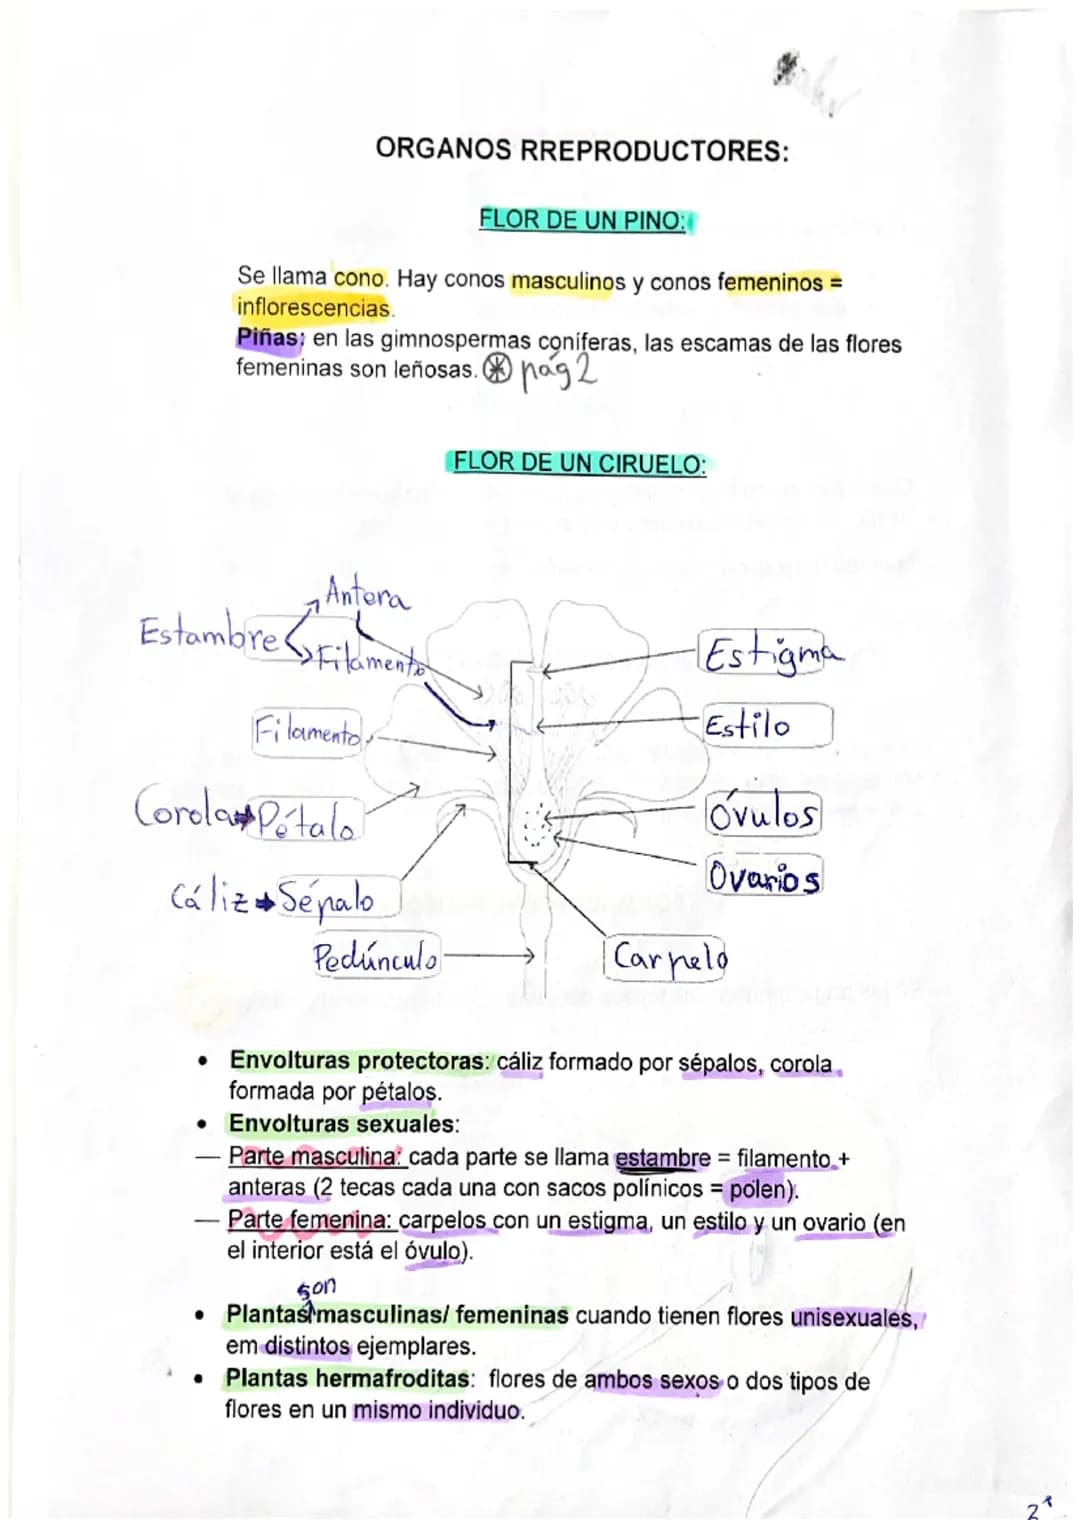 ORGANOS RREPRODUCTORES:
FLOR DE UN PINO:
Se llama cono. Hay conos masculinos y conos femeninos =
inflorescencias.
Piñas: en las gimnospermas coníferas, las escamas de las flores
femeninas son leñosas. pág 2
FLOR DE UN CIRUELO:
Antera
Estambre
Filamento
Estigma
Filamento
Estilo
Corola Pétalo
Óvulos
Ovarios
Cáliz Sépalo
Pedúnculo
Carpelo
• Envolturas protectoras: cáliz formado por sépalos, corola
formada por pétalos.
• Envolturas sexuales:
— Parte masculina: cada parte se llama estambre = filamento +
anteras (2 tecas cada una con sacos polínicos = polen).
— Parte femenina: carpelos con un estigma, un estilo y un ovario (en
el interior está el óvulo).
son
• Plantas masculinas/ femeninas cuando tienen flores unisexuales,
em distintos ejemplares.
• Plantas hermafroditas: flores de ambos sexos o dos tipos de
flores en un mismo individuo.